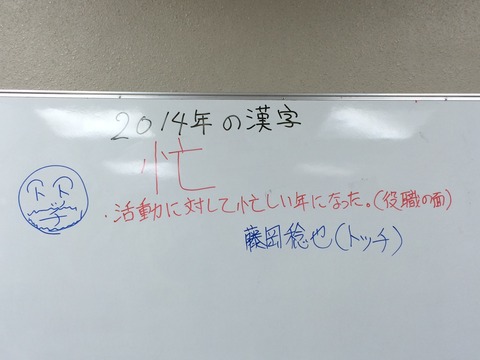 2014年の漢字
忙
・活動に対して忙しい年になった。(役職の面)
藤岡稔也(トッチ)
トト
チ